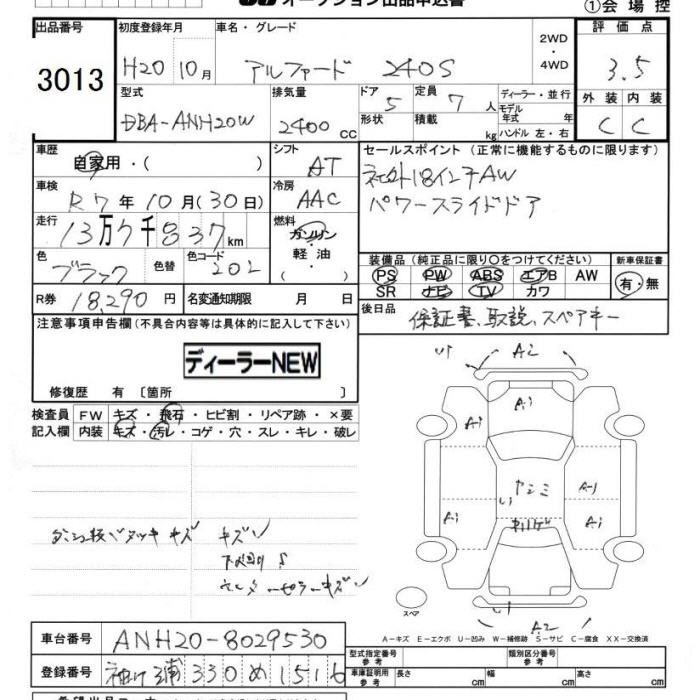 オークション出品申込書
①会場控
出品番号 3013
初度登録年月 H20 10月
車名・グレード アルファード 240S
2WD・4WD
評価点 3.5
型式 DBA-ANH20W
排気量 2400 CC
ドア 5
形状
定員 7 人
積載 kg
ディーラー・並行
モデル年式 年
ハンドル 左・右
外装 C 内装 C
車歴 自家用・( )
シフト AT
車検 R7年10月(30日)
冷房 AAC
走行 13万7千837km
燃料 ガソリン・軽油・( )
色 ブラック 色替 色コード 202
R券 18,290円 名変通知期限 月 日
セールスポイント(正常に機能するものに限ります)
社外18インチAW
パワースライドドア
装備品(純正品に限り〇をつけてください)
PS PW ABS エアB AW
SR ナビ TV カワ
新車保証書 有・無
後日品 保証書、取説、スペアキー
注意事項申告欄(不具合内容等は具体的に記入して下さい)
ディーラーNEW
修復歴 有 [箇所 ]
検査員記入欄
FW キズ・飛石・ヒビ割・リペア跡・×要
内装 キズ・汚レ・コゲ・穴・スレ・キレ・破レ
キズ キズ
A2
A1
A1
A1
A1
A2
スペア
A-キズ E-エクボ U-凹み W-補修跡 S-サビ C-腐食 XX-交換済
車台番号 ANH20-8029530
登録番号 330 め 1516
型式指定番号 参考
類別区分番号 参考
車庫証明用 参考 長さ cm 幅 cm 高さ cm